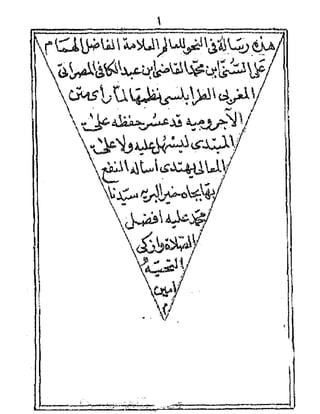 ١
هذه رسالة فى النحو للعالم العلامة الفاضل الهمام
على السنى ابن محمد القاضى ابن عبد الكافى المصراتى
المغربى الطرابلسى نظمها لما رأى متن
الآجروميه قد عسر حفظه على
المبتدى ليسهل عليه ولا على
المعالى يهتدى أساله النفع
بها بجاه خير البريه سيدنا
محمد عليه افضل
الصلاة وازكى
التحيه
امين
م